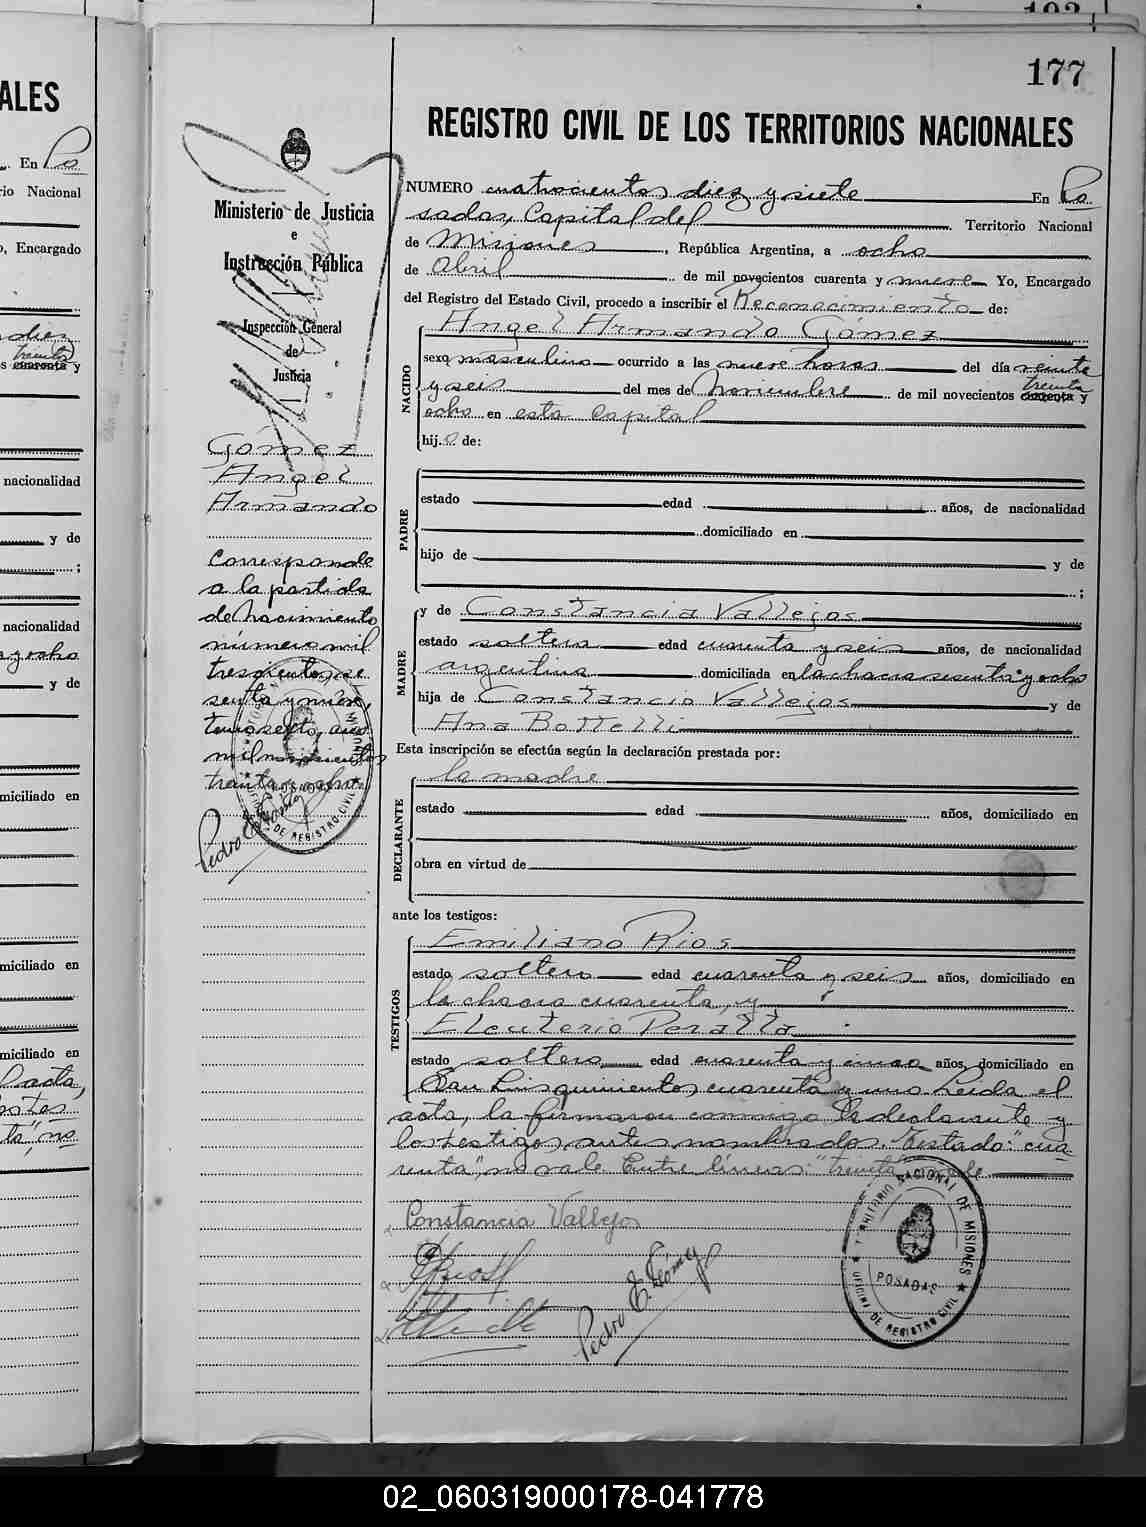 103
177
ALES
REGISTRO CIVIL DE LOS TERRITORIOS NACIONALES
En Po
rio Nacional
Encargado
Ministerio de Justicia
e
Instrucción Pública
Inspección General
de
Justicia
NUMERO cuatrocientos diez y siete En Po
sadas, Capital del Territorio Nacional
de Misiones, República Argentina, a ocho
de Abril de mil novecientos cuarenta y nueve Yo, Encargado
del Registro del Estado Civil, procedo a inscribir el Reconocimiento de:
NACIDO
Angel Armando Gómez
sexo masculino ocurrido a las nueve horas del día veinte
treinta
y seis del mes de Noviembre de mil novecientos cuarenta y
ocho en esta Capital
hijo de:
Gómez
Angel
Armando
PADRE
estado edad años, de nacionalidad
domiciliado en
hijo de y de
;
Corresponde
a la partida
de Nacimiento
número mil
trescientos se
senta y nueve,
tomo sexto, año
mil novecientos
treinta y ocho.
Pedro E. Gómez
MADRE
y de Constancia Vallejos
estado soltera edad cuarenta y seis años, de nacionalidad
argentina domiciliada en la chacra sesenta y ocho
hija de Constancio Vallejos y de
Ana Bottelli
Esta inscripción se efectúa según la declaración prestada por:
DECLARANTE
la madre
estado edad años, domiciliado en
obra en virtud de
ante los testigos:
TESTIGOS
Emiliano Rios
estado soltero edad cuarenta y seis años, domiciliado en
la chacra cuarenta, y
Eleuterio Peralta
estado soltero edad cuarenta y cinco años, domiciliado en
San Luis quinientos cuarenta y uno Leida el
acta, la firmaron conmigo la declarante y
los testigos antes nombrados. Testado: "cua-
renta", no vale Entre líneas: "treinta" vale
Constancia Vallejos
Pedro E. Gómez
TERRITORIO NACIONAL DE MISIONES
POSADAS
OFICINA DE REGISTRO CIVIL
nacionalidad
y de
;
nacionalidad
y de
miciliado en
miciliado en
miciliado en
02_060319000178-041778